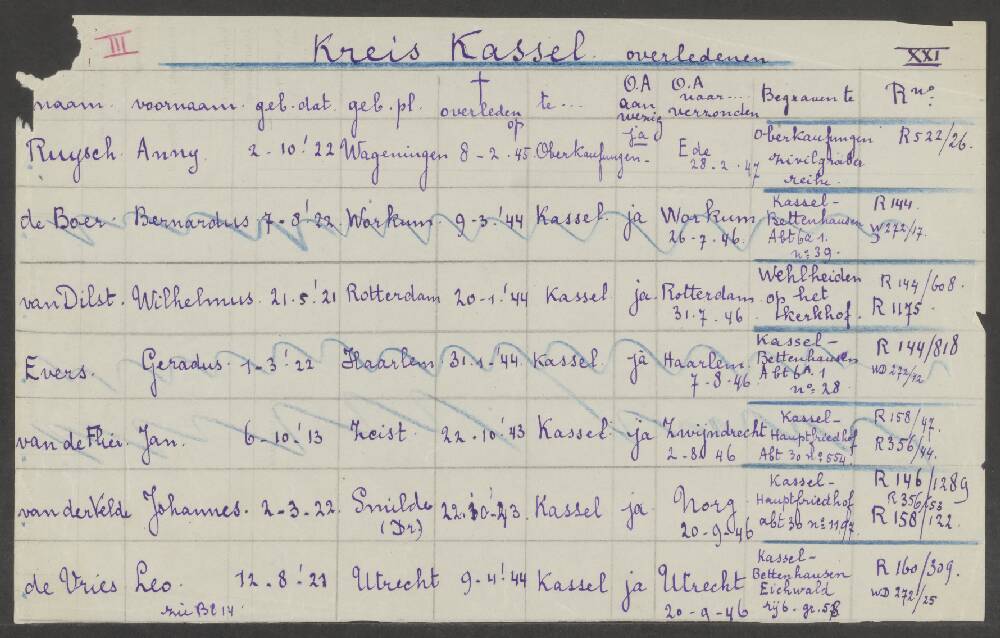 III Kreis Kassel. overledenen XXI
naam. voornaam. geb. dat. geb. pl. † overleden op te... O.A aan wezig O.A naar... verzonden Begraven te R no.
Ruysch. Anny. 2-10-'22 Wageningen 8-2-45. Oberkaufungen- ja Ede 28-2-47 Oberkaufungen zivilgräber reihe. R522/26.
de Boer. Bernardus 7-8-'22. Workum. 9-3-'44 Kassel. ja Workum 26-7-46. Kassel- Bettenhausen Abt 6a 1. no 39. R 144. W 272/17.
van Dilst. Wilhelmus. 21.5.'21 Rotterdam 20-1-'44 Kassel ja. Rotterdam 31.7.46. Wehlheiden op het kerkhof. R 144/608. R 1175.
Evers. Geradus. 1-3-'22 Haarlem 31-1-44. Kassel. ja Haarlem. 7-8-46 Kassel- Bettenhausen Abt 6A.1 no 28. R 144/818 WD 272/12
van de Flier. Jan. 6-10-'13 Zeist. 22.10.'43 Kassel. ja Zwijndrecht 2-8-46 Kassel- Hauptfriedhof Abt 30 no 554. R 158/47. R356/44.
van der Velde Johannes. 2-3-22. Smilde (Dr) 22.10-43 Kassel ja. Norg 20-9-46 Kassel- Hauptfriedhof abt 30 no R 146/1289 R 356/53 R 158/122.
de Vries Leo. 12-8-'21 Utrecht 9-4-'44 Kassel ja Utrecht 20-9-46 Kassel- Bettenhausen Eichwald rij 6. gr. 58 R 160/309. WD 272/25
zie Bl 14.